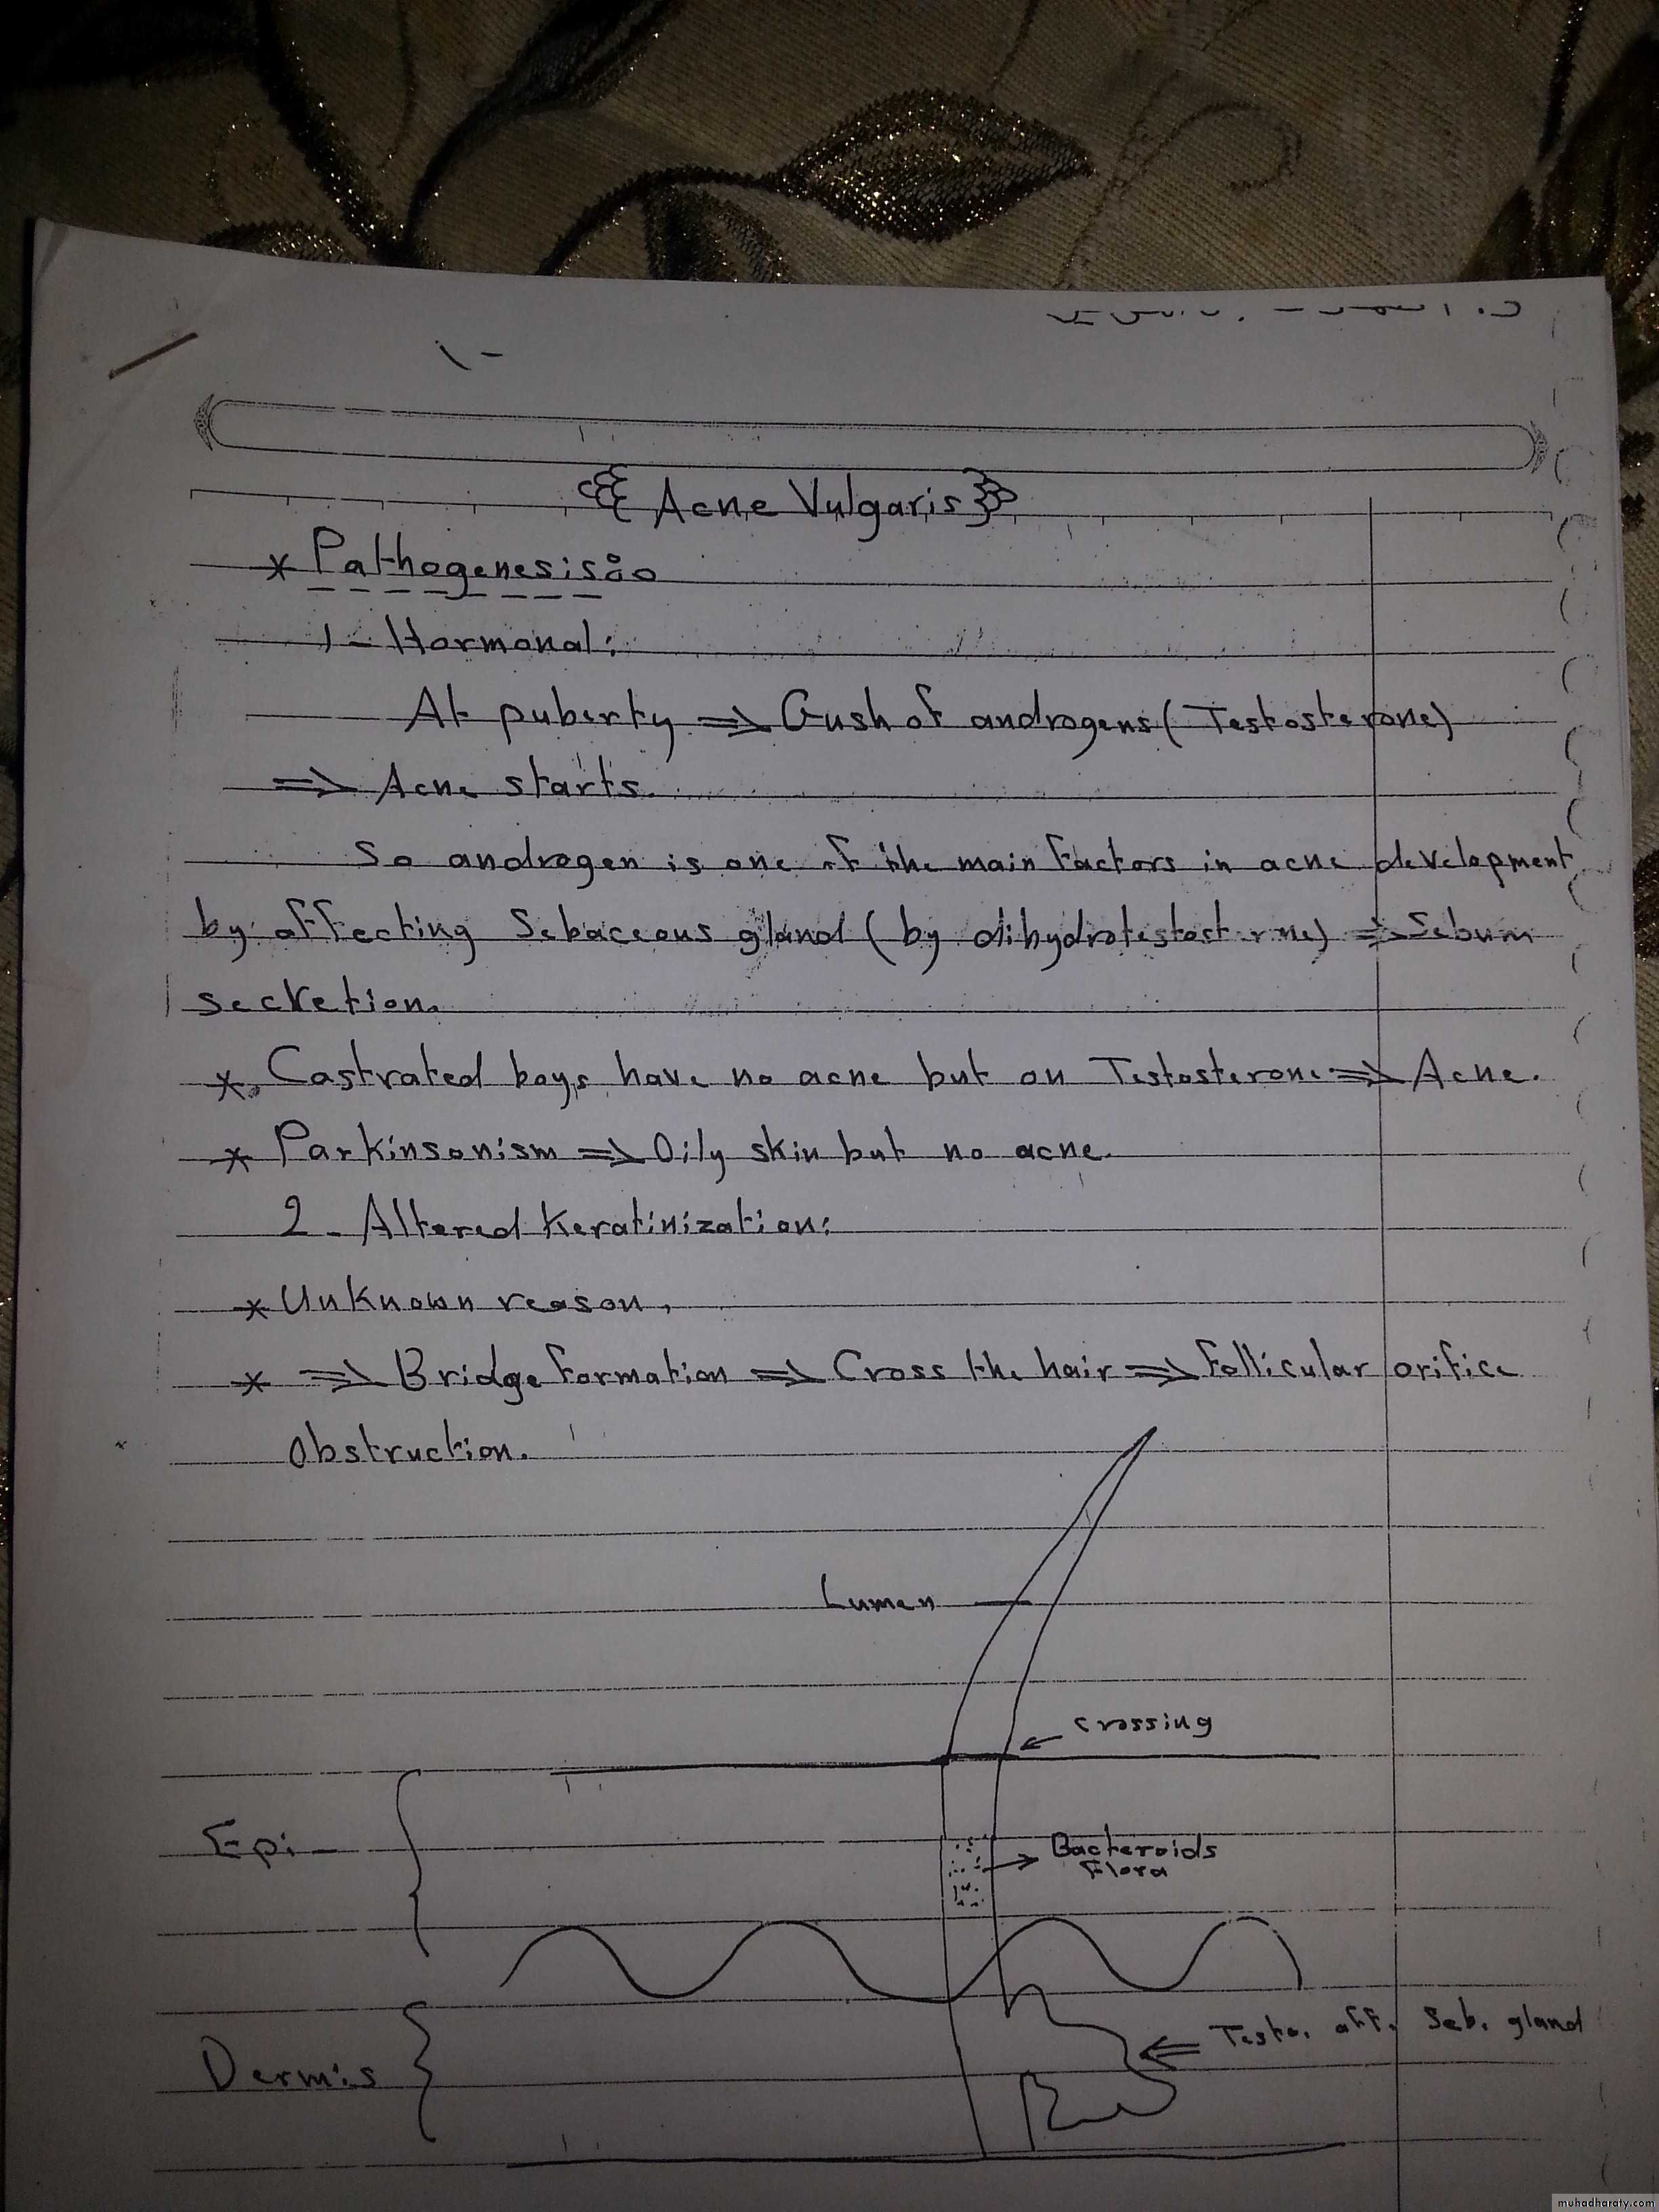 ١-
Acne Vulgaris
* Pathogenesis:
1- Hormonal:
At puberty => Gush of androgens (Testosterone)
=> Acne starts.
So androgen is one of the main factors in acne development
by affecting Sebaceous gland (by dihydrotestosterone) => Sebum
secretion.
* Castrated boys have no acne but on Testosterone => Acne.
* Parkinsonism => Oily skin but no acne.
2- Altered Keratinization:
* Unknown reason.
* => Bridge formation => Cross the hair => follicular orifice
obstruction.
Lumen
crossing
Epi
Bacteroids
Flora
Testo. aff. Seb. gland
Dermis
muhadharaty.com